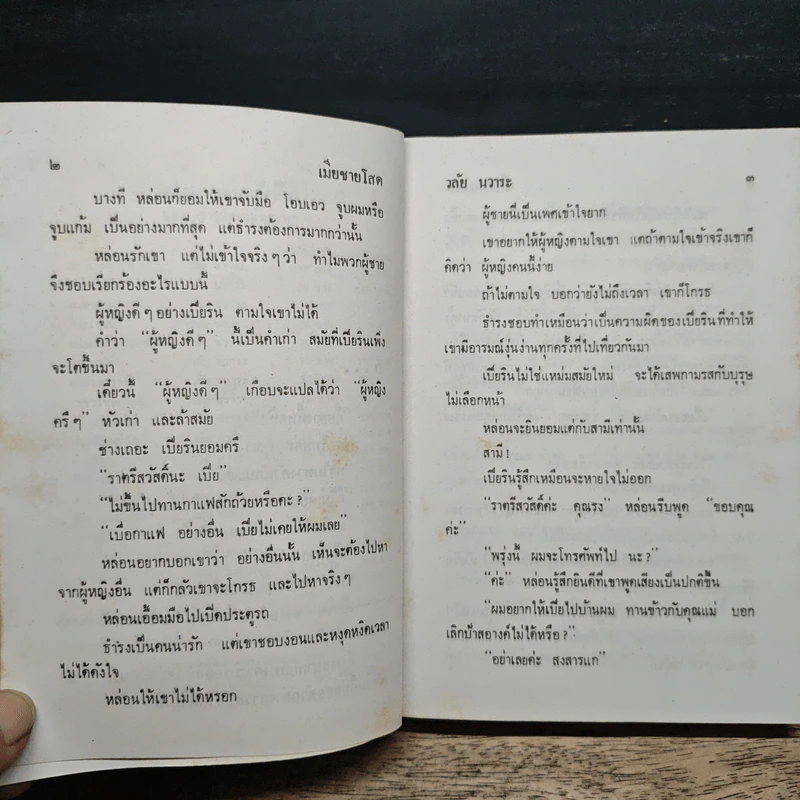 ๒
เมียชายโสด
บางที หล่อนก็ยอมให้เขาจับมือ โอบเอว จูบผมหรือ
จูบแก้ม เป็นอย่างมากที่สุด แต่ธำรงต้องการมากกว่านั้น
หล่อนรักเขา แต่ไม่เข้าใจจริงๆ ว่า ทำไมพวกผู้ชาย
จึงชอบเรียกร้องอะไรแบบนี้
ผู้หญิงดีๆ อย่างเบียริน ตามใจเขาไม่ได้
คำว่า “ผู้หญิงดีๆ” นี้เป็นคำเก่า สมัยที่เบียรินเพิ่ง
จะโตขึ้นมา
เดี๋ยวนี้ “ผู้หญิงดีๆ” เกือบจะแปลได้ว่า “ผู้หญิง
ครึๆ” หัวเก่า และล้าสมัย
ช่างเถอะ เบียรินยอมครึ
“ราตรีสวัสดิ์นะ เบีย”
“ไม่ขึ้นไปทานกาแฟสักถ้วยหรือคะ ?”
“เบื่อกาแฟ อย่างอื่น เบียไม่เคยให้ผมเลย”
หล่อนอยากบอกเขาว่า อย่างอื่นนั้น เห็นจะต้องไปหา
จากผู้หญิงอื่น แต่ก็กลัวเขาจะโกรธ และไปหาจริงๆ
หล่อนเอื้อมมือไปเปิดประตูรถ
ธำรงเป็นคนน่ารัก แต่เขาชอบงอนและหงุดหงิดเวลา
ไม่ได้ดังใจ
หล่อนให้เขาไม่ได้หรอก
วลัย นวาระ
๓
ผู้ชายนี่เป็นเพศเข้าใจยาก
เขาอยากให้ผู้หญิงตามใจเขา แต่ถ้าตามใจเข้าจริงเขาก็
คิดว่า ผู้หญิงคนนี้ง่าย
ถ้าไม่ตามใจ บอกว่ายังไม่ถึงเวลา เขาก็โกรธ
ธำรงชอบทำเหมือนว่าเป็นความผิดของเบียรินที่ทำให้
เขามีอารมณ์งุ่นง่านทุกครั้งที่ไปเที่ยวกันมา
เบียรินไม่ใช่แหม่มสมัยใหม่ จะได้เสพกามรสกับบุรุษ
ไม่เลือกหน้า
หล่อนจะยินยอมแต่กับสามีเท่านั้น
สามี !
เบียรินรู้สึกเหมือนจะหายใจไม่ออก
“ราตรีสวัสดิ์ค่ะ คุณรง” หล่อนรีบพูด “ขอบคุณ
ค่ะ”
“พรุ่งนี้ ผมจะโทรศัพท์ไป นะ ?”
“ค่ะ” หล่อนรู้สึกยินดีที่เขาพูดเสียงเป็นปกติขึ้น
“ผมอยากให้เบียไปบ้านผม ทานข้าวกับคุณแม่ บอก
เลิกป้าสอางค์ไม่ได้หรือ ?”
“อย่าเลยค่ะ สงสารแก”